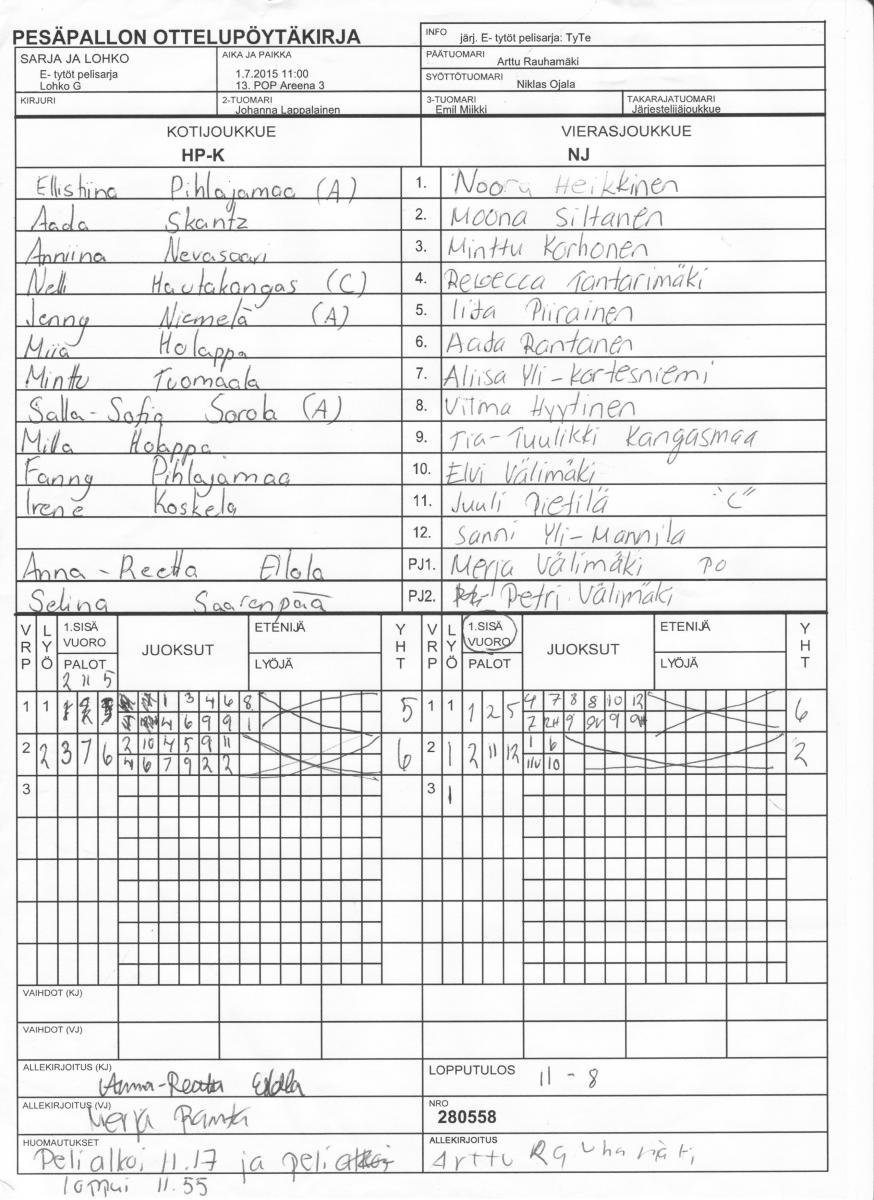 PESÄPALLON OTTELUPÖYTÄKIRJA
INFO järj. E- tytöt pelisarja: TyTe
SARJA JA LOHKO
E- tytöt pelisarja
Lohko G
AIKA JA PAIKKA
1.7.2015 11:00
13. POP Areena 3
PÄÄTUOMARI
Arttu Rauhamäki
SYÖTTÖTUOMARI
Niklas Ojala
KIRJURI
2-TUOMARI
Johanna Lappalainen
3-TUOMARI
Emil Miikki
TAKARAJATUOMARI
Järjestelijäjoukkue
KOTIJOUKKUE VIERASJOUKKUE
HP-K NJ
Ellistiina Pihlajamaa (A) 1. Noora Heikkinen
Aada Skantz 2. Moona Siltanen
Anniina Nevasaari 3. Minttu Korhonen
Nelli Hautakangas (C) 4. Rebecca Tantarimäki
Jenny Niemelä (A) 5. Iita Piirainen
Miia Holappa 6. Aada Rantanen
Minttu Tuomaala 7. Aliisa Yli-Kortesniemi
Salla-Sofia Sorola (A) 8. Vilma Hyytinen
Milla Holappa 9. Tia-Tuulikki Kangasmaa
Fanny Pihlajamaa 10. Elvi Välimäki
Irene Koskela 11. Juuli Pietilä "C"
12. Sanni Yli-Mannila
Anna-Reetta Eilola PJ1. Merja Välimäki PO
Selina Saarenpää PJ2. Petri Välimäki
VRP LYÖ 1.SISÄ VUORO JUOKSUT ETENIJÄ YHT VRP LYÖ 1.SISÄ VUORO JUOKSUT ETENIJÄ YHT
PALOT LYÖJÄ PALOT LYÖJÄ
2 11 5
1 1 1 3 4 6 8 5 1 1 1 2 5 4 7 8 8 10 12 6
4 6 9 9 1 7 9 9
2 2 3 7 6 2 10 4 5 9 11 6 2 1 2 11 12 1 6 2
4 6 7 9 2 2 11V 10
3 3 1
VAIHDOT (KJ)
VAIHDOT (VJ)
ALLEKIRJOITUS (KJ) Anna-Reetta Eilola
LOPPUTULOS 11-8
ALLEKIRJOITUS (VJ) Merja
NRO
280558
HUOMAUTUKSET
Peli alkoi 11.17 ja peli
loppui 11.55
ALLEKIRJOITUS
Arttu Rauhamäki